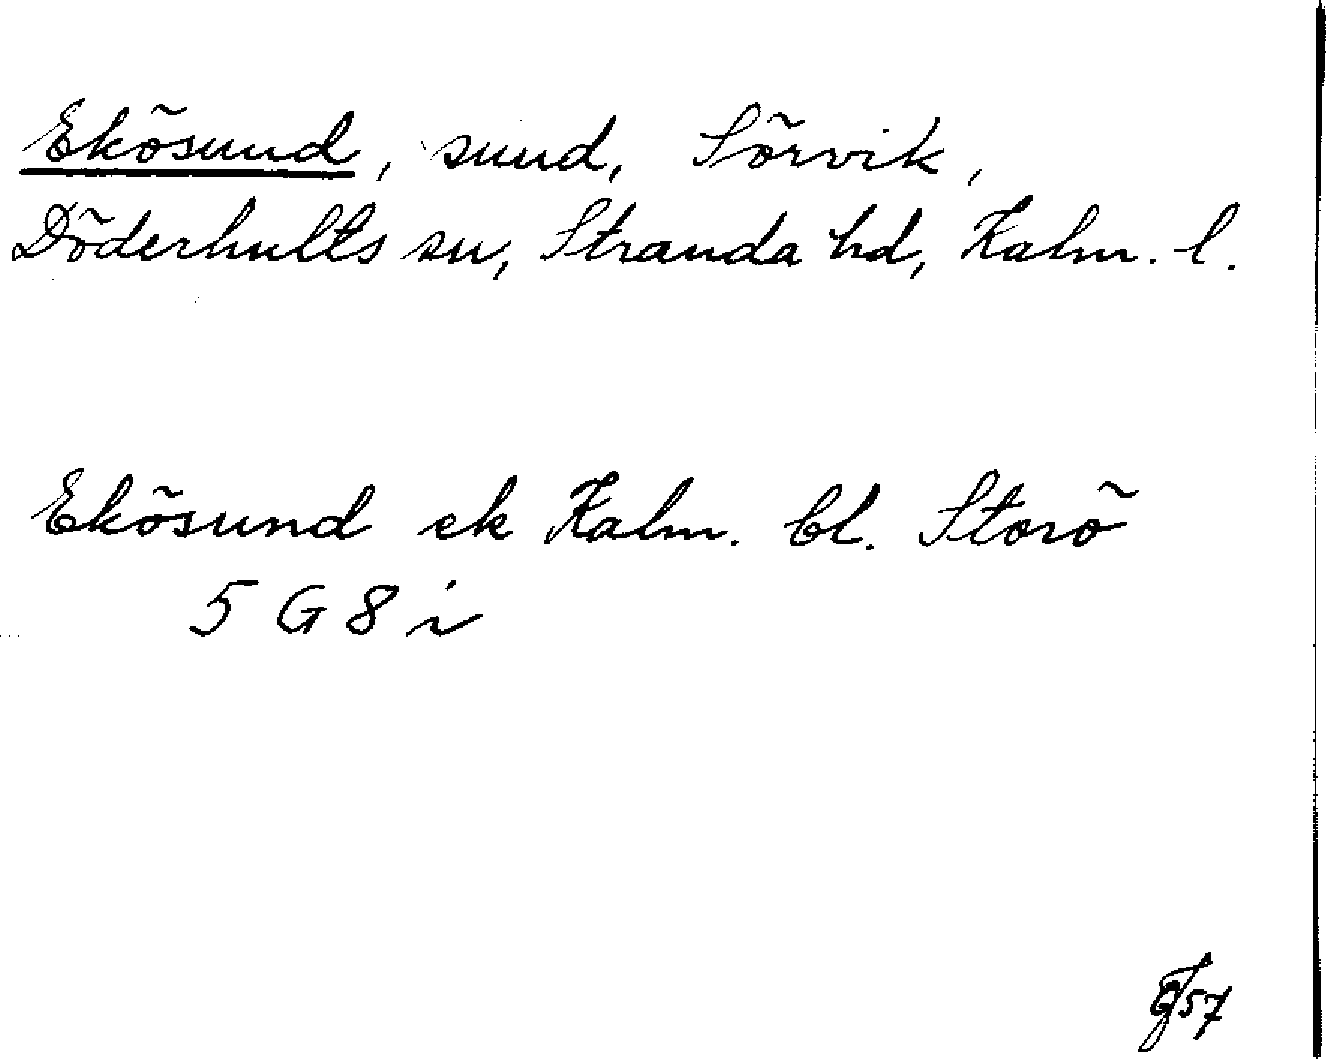 Ekösund, sund, Sörvik,
Döderhults sn, Stranda hd, Kalm. l.
Ekösund ek Kalm. bl. Storö
5 G 8 i
57